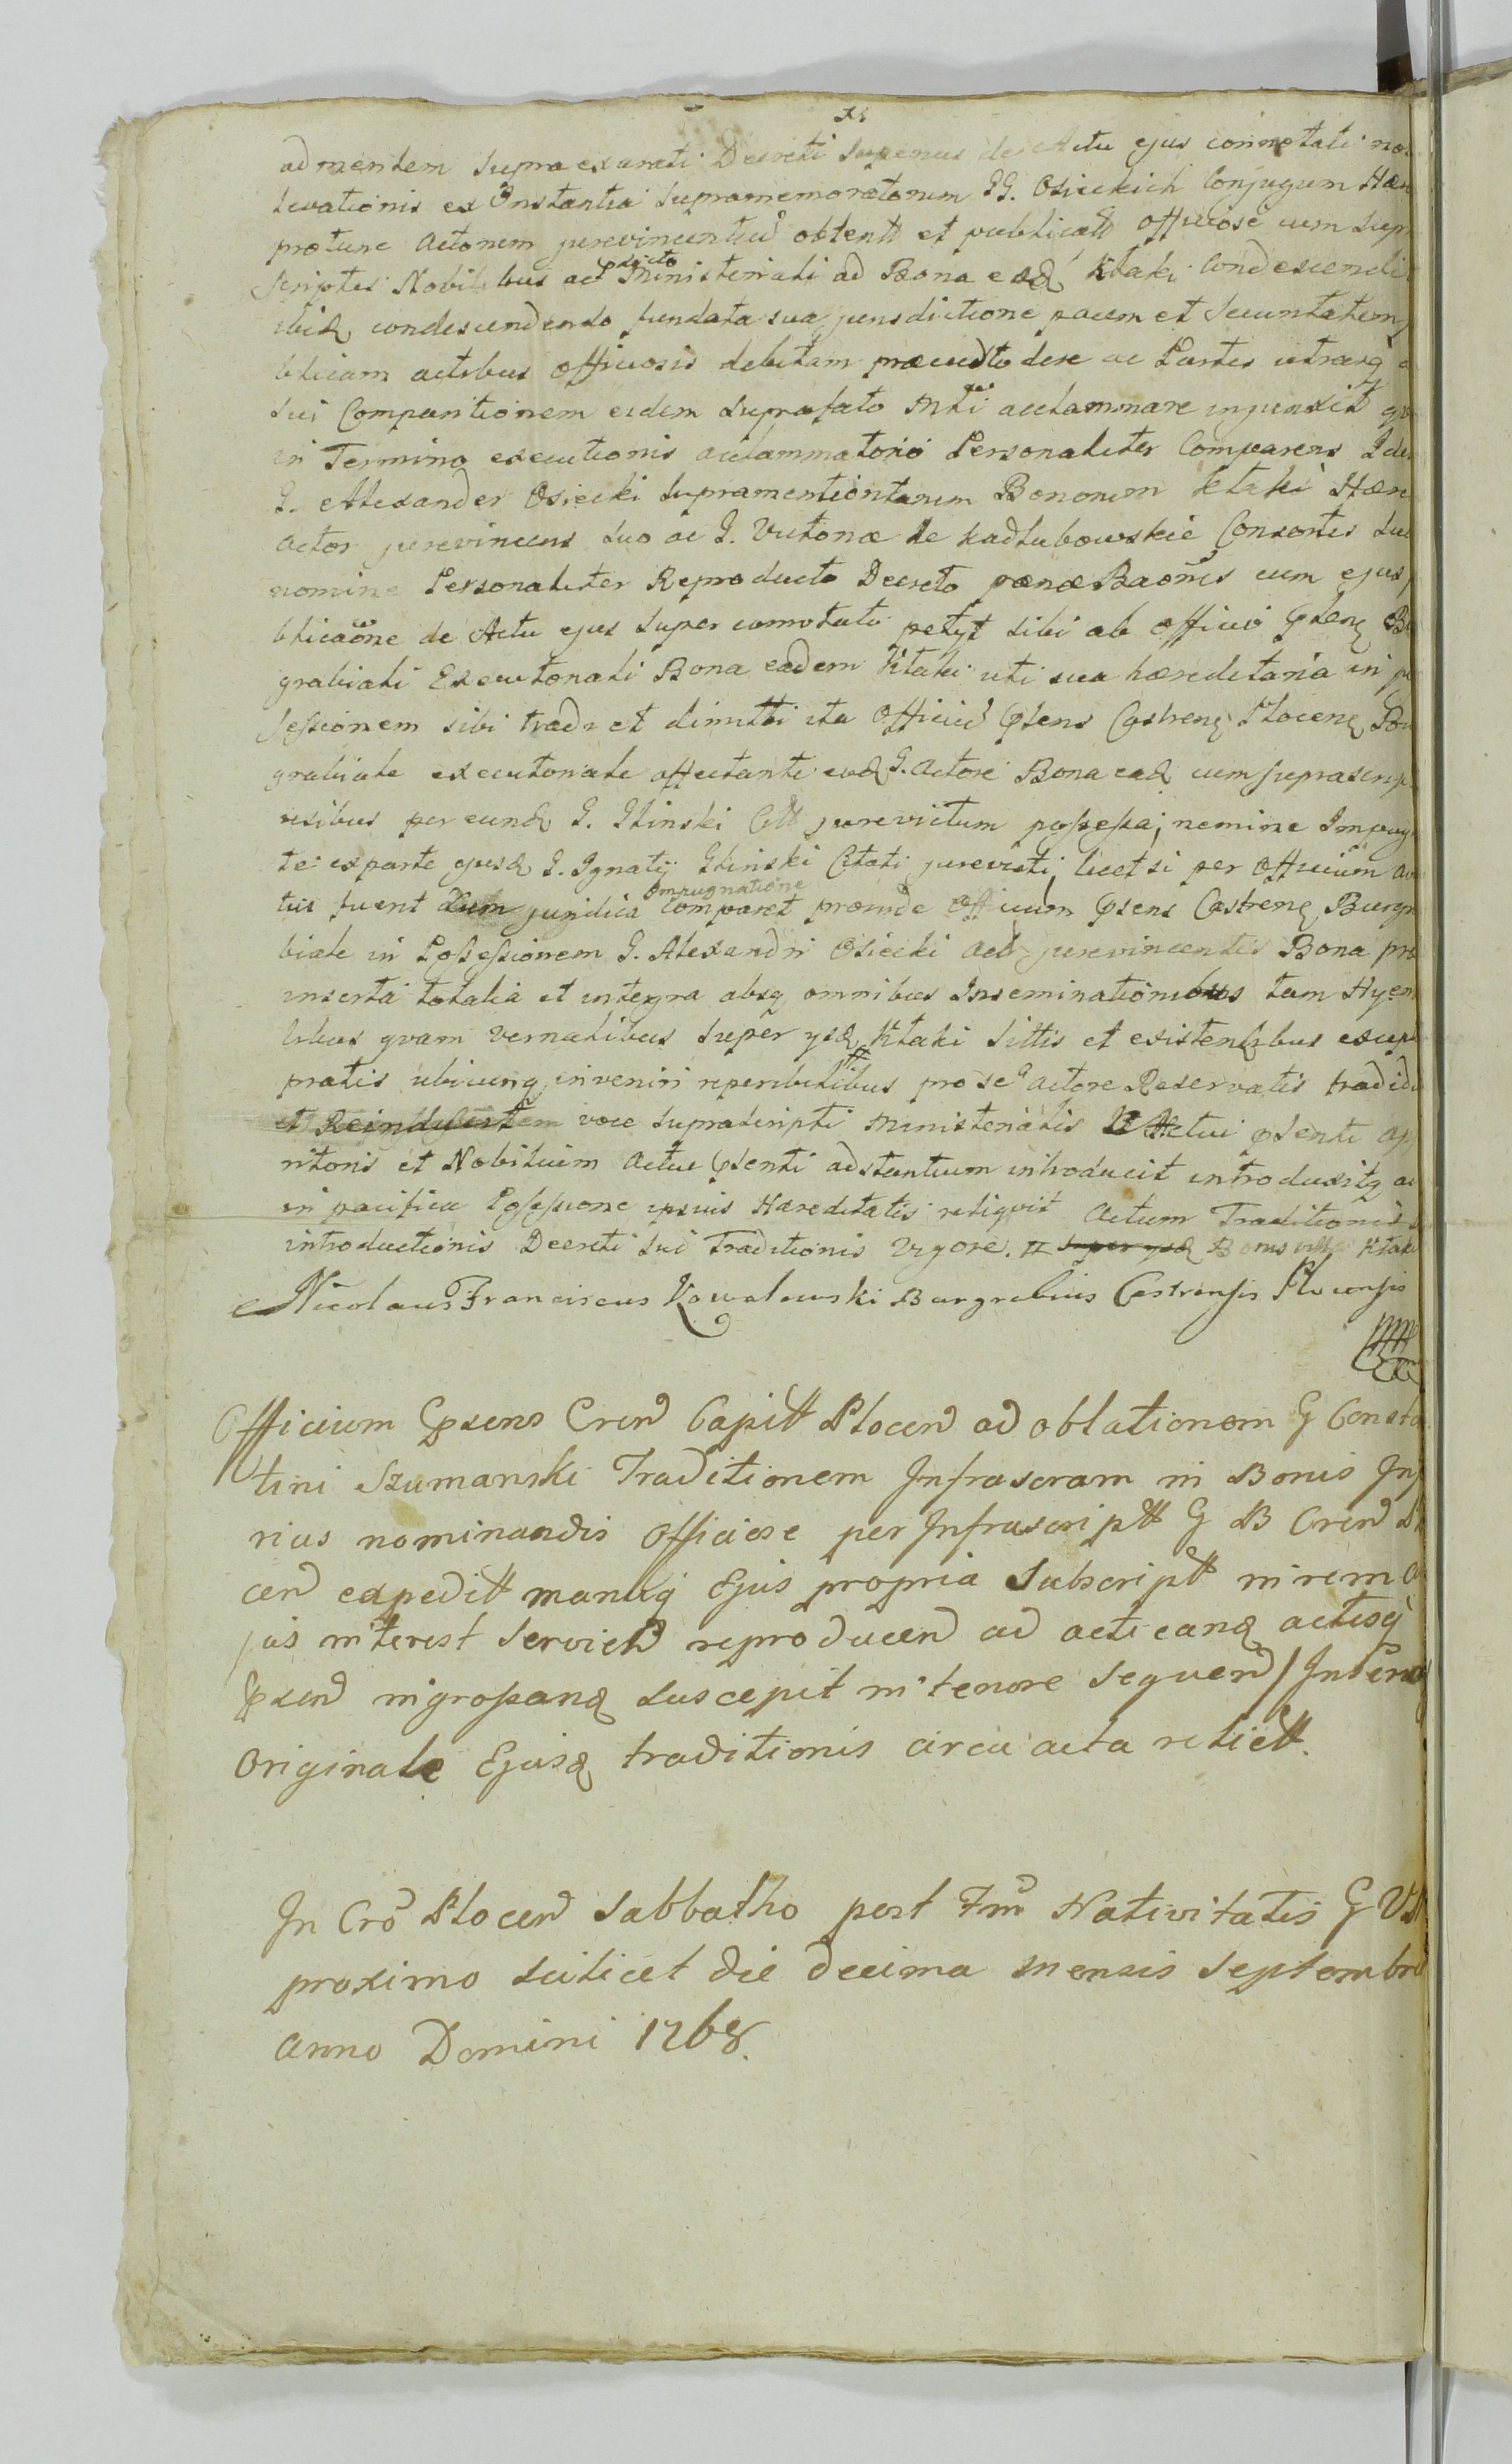 ad mentem supra exarati Decreti superius de Actu ejus connotati
levationis ex Instantia supramemoratorum GG. Osieckich Conjugum Hæ
protunc Actorum jurevincentiu obtentt et publicatt officiose cum supr
scriptis Nobilibus ac pdicto Ministeriali ad Bona eadꝫ Ktaki Condescendi
ibidꝫ condescendendo fundata sua jurisdictione pacem et securitatem p
blicam actibus officiosis debitam præcusto dere ac Partes utrasq a
sui Comparitionem eidem suprafato Mrli acclammare injunxit
in Termino executionis acclammatorio Personaliter Comparens Ide
G. Alexander Osiecki supramentiontorum Bonorum Ktaki Hære
actor jurevincens suo ac G. Victoriæ de Kadłubowskie Consortis suæ
nomine Personaliter Reproducto Decreto pænæ Baōnis cum ejus p
blicaōne de Actu ejus super connotato petyt sibi ab officio pſenꝫ B
grabiali Executoriali Bona eadem Ktaki uti sua hæreditaria in po
ſeſsionem sibi tradi et dimitti ita Officiu pſens Castrenꝫ Plocenꝫ Bur
grabiale executoriale affectante eodꝫ G. Actore Bona eadꝫ cum suprascrip
resibus per eundꝫ G. Glinski Citt jurevictum poſseſsa; nemine Impug
te ex parte ejusdꝫ G. Ignatij Glinski Citati jurevicti, licet si per officium
tus fuerit juridica Impugnatione comparet proinde Officium pſens Castrenꝫ Burgra
biale in Poſseſsionem G. Alexandri Osiecki Act jurevincentis Bona præ
inserta totalia et integra absq omnibus Inseminationibus tam Hyem
libus qvam vernalibus super ysdꝫ Ktaki sittis et existentibus except
pratis ubicunq inveniri reperibilibus pro se Actore Reservatis tradidi
et voce suprascripti Ministerialis Actui pſenti app
ritoris et Nobilium Actui pſenti adstantium introducit introduxitq
in pacifica Poſseſsione ipsius Hæreditatis reliqvit Actum Traditionis
introductionis Decreti sui Traditionis Vigore. super ysdꝫ Bonis villa Ktaki
Nicolaus Franciscus Kowalewski Burgrabius Castrensis Plocensis
Officium pſens Cren Capitt Plocen ad oblationem G Consta
tini Szumanski Traditionem Infrascram in Bonis Inf
rius nominandis Officiose per Infrascriptt G B Cren Plo
cen expeditt manuq Ejus propria Subscriptt in rem
jus interest Servien reproducen ad acticanꝫ actisq
pſen ingroſsanꝫ suscepit in tenore Seqven / Inseren
Originale Ejusdꝫ traditionis circa acta relictt.
In Cro Plocen Sabbatho post Fm Nativitatis G V M
proximo scilicet die decima mensis Septembri
Anno Domini 1768.